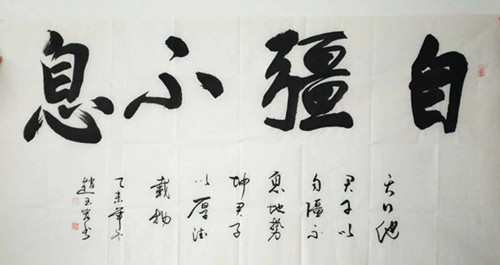 自彊不息
天行健
君子以
自彊不
息地势
坤君子
以厚德
载物
乙未年冬
赵玉